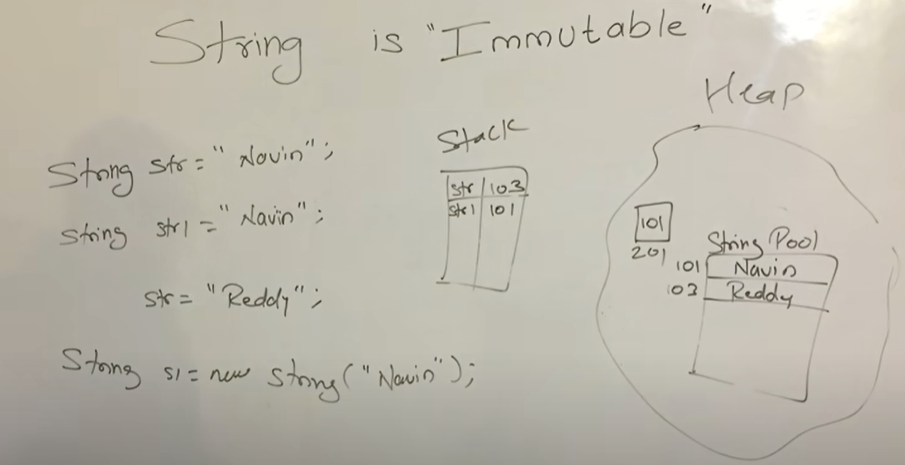 String is "Immutable"
String str = "Navin";
String str1 = "Navin";
str = "Reddy";
String s1 = new String("Navin");
Stack
str 103
str1 101
Heap
101
201
String Pool
101 Navin
103 Reddy